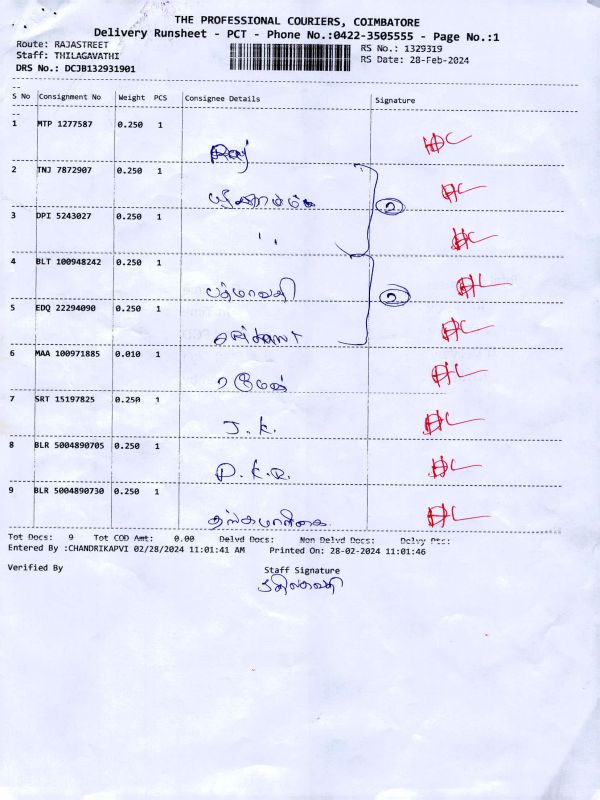 THE PROFESSIONAL COURIERS, COIMBATORE
Delivery Runsheet - PCT - Phone No.:0422-3505555 - Page No.:1
Route: RAJASTREET
RS No.: 1329319
Staff: THILAGAVATHI
RS Date: 28-Feb-2024
DRS No.: DCJB132931901
S No Consignment No Weight PCS Consignee Details Signature
1 MTP 1277587 0.250 1
2 TNJ 7872907 0.250 1
2
3 DPI 5243027 0.250 1
4 BLT 100948242 0.250 1
பத்மாவதி
2
5 EDQ 22294090 0.250 1
6 MAA 100971885 0.010 1
ரமேஷ்
7 SRT 15197825 0.250 1
J.K.
8 BLR 5004890705 0.250 1
9 BLR 5004890730 0.250 1
தங்கமாளிகை
Tot Docs: 9 Tot COD Amt: 0.00 Delvd Docs: Non Delvd Docs: Delvy Pts:
Entered By :CHANDRIKAPVI 02/28/2024 11:01:41 AM Printed On: 28-02-2024 11:01:46
Verified By Staff Signature